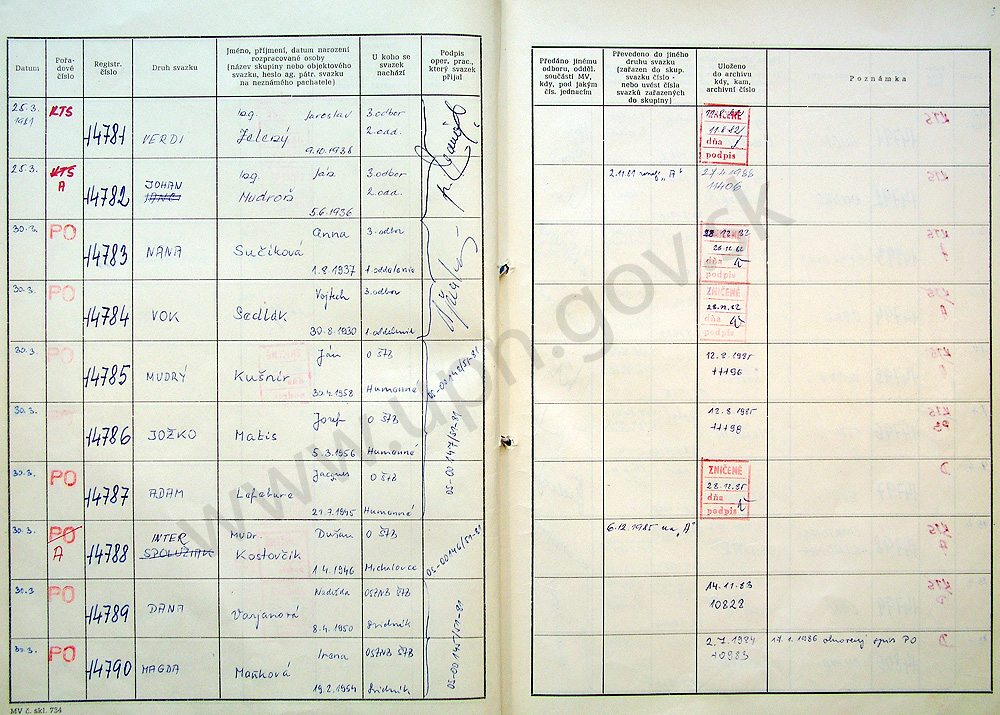 Datum
Pořa-
dové
číslo
Registr.
číslo
Druh svazku
Jméno, příjmení, datum narození
rozpracované osoby
(název skupiny nebo objektového
svazku, heslo ag. pátr. svazku
na neznámého pachatele)
U koho se
svazek
nachází
Podpis
oper. prac.,
který svazek
přijal
Předáno jinému
odboru, odděl.
součásti MV,
kdy, pod jakým
čís. jednacím
Převedeno do jiného
druhu svazku
(zařazen do skup.
svazku číslo -
nebo uvést čísla
svazků zařazených
do skupiny)
Uloženo
do archivu
kdy, kam,
archivní číslo
Poznámka
25.3.
1981
KTS
14781
VERDI
Ing. Jaroslav
Zelený
9.10.1936
3.odbor
2.odd.
ZNIČENÉ
11.8.82
dňa
podpis
25.3.
KTS
A
14782
JOHAN
Ing. Ján
Mudroň
5.6.1936
3.odbor
2.odd.
"A"
27.4.1988
11406
30.3.
PO
14783
NANA
Anna
Sučíková
1.8.1937
3.odbor
1.oddelenie
28.12.82
dňa
podpis
30.3.
PO
14784
VOK
Vojtech
Sedlák
30.8.1930
3.odbor
1.oddelenie
ZNIČENÉ
28.12.82
dňa
podpis
30.3.
PO
14785
MUDRÝ
Ján
Kušnír
30.4.1958
O ŠtB
Humenné
12.8.1985
11196
30.3.
14786
JOŽKO
Jozef
Matis
5.3.1956
O ŠtB
Humenné
OS-00147/51-81
12.8.1985
11198
30.3.
PO
14787
ADAM
Jacques
Lefebure
21.7.1945
O ŠtB
Humenné
ZNIČENÉ
28.12.85
dňa
podpis
30.3.
PO
A
14788
INTER
SPOLUŽIAK
MUDr. Dušan
Kostovčík
1.4.1946
O ŠtB
Michalovce
OS-00146/51-81
6.12.1985 na "A"
30.3.
PO
14789
DANA
Nadežda
Varjanová
8.4.1950
OSZNB ŠtB
Svidník
OS-00145/51-81
14.11.83
10828
30.3.
PO
14790
MAGDA
Irena
Maňková
19.2.1954
OSZNB ŠtB
Svidník
2.7.1984
10983
17.1.1986 otvorený spis PO
MV č. skl. 734
www.upn.gov.sk